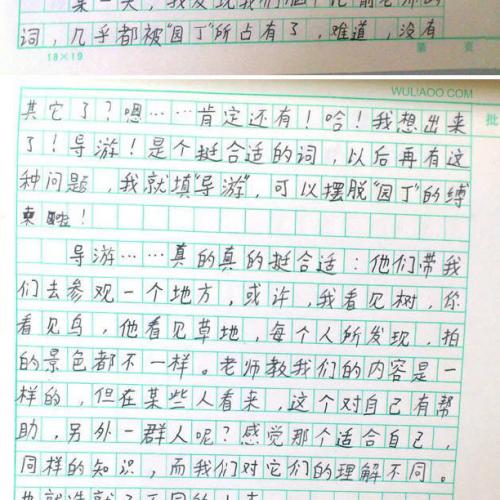 某一天,我发现我们
词,几乎都被“园丁”所占有了,难道,没有
18×19
第 页
WULIAOO.COM
批
其它了?嗯……肯定还有!哈!我想出来
了!导游!是个挺合适的词,以后再有这
种问题,我就填“导游”,可以摆脱“园丁”的缚
束啦!
导游……真的真的挺合适:他们带我
们去参观一个地方,或许,我看见树,你
看见鸟,他看见草地,每个人所发现,拍
的景色都不一样。老师教我们的内容是一
样的,但在某些人看来,这个对自己有帮
助,另外一群人呢?感觉那个适合自己,
同样的知识,而我们对它们的理解不同。